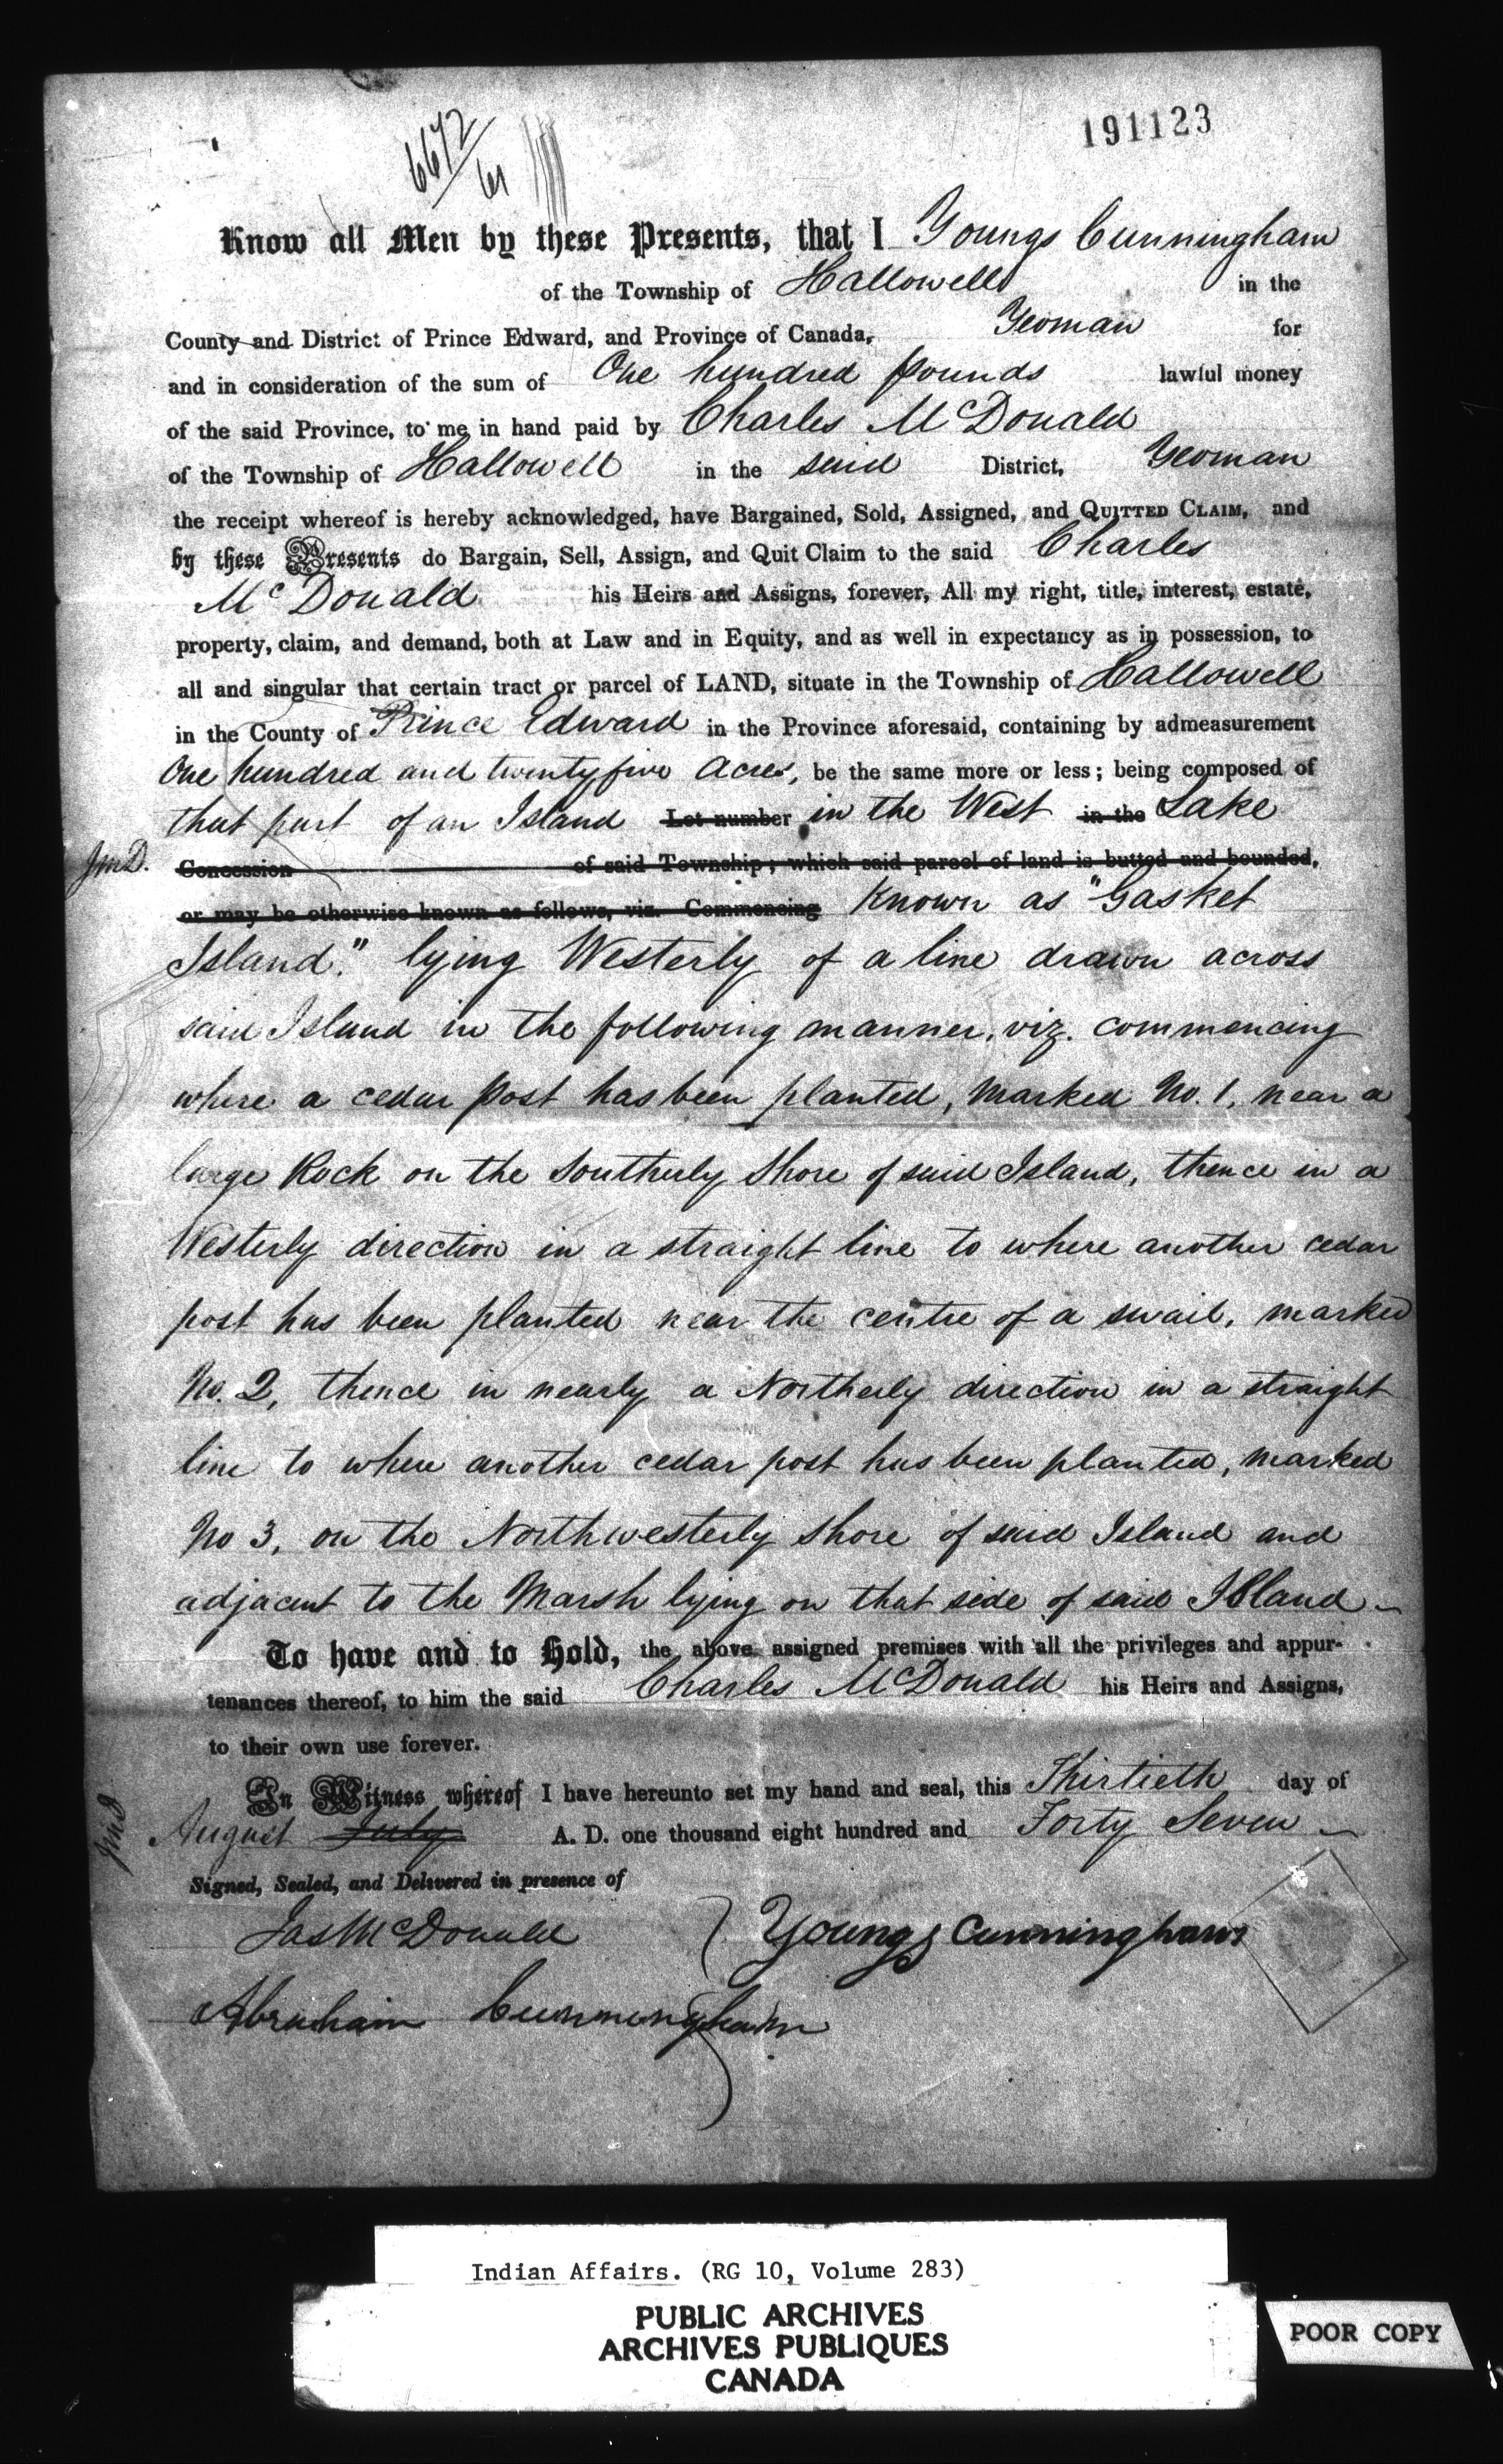 191123
6672/61
Know all Men by these Presents, that I Youngs Cunningham
of the Township of Hallowell in the
County and District of Prince Edward, and Province of Canada, Yeoman for
and in consideration of the sum of One hundred pounds lawful money
of the said Province, to me in hand paid by Charles McDonald
of the Township of Hallowell in the said District, Yeoman
the receipt whereof is hereby acknowledged, have Bargained, Sold, Assigned, and QUITTED CLAIM, and
by these Presents do Bargain, Sell, Assign, and Quit Claim to the said Charles
McDonald his Heirs and Assigns, forever, All my right, title, interest, estate,
property, claim, and demand, both at Law and in Equity, and as well in expectancy as in possession, to
all and singular that certain tract or parcel of LAND, situate in the Township of Hallowell
in the County of Prince Edward in the Province aforesaid, containing by admeasurement
One hundred and twenty five Acres, be the same more or less; being composed of
that part of an Island Lot number in the West in the Lake
JMcD. Concession of said Township; which said parcel of land is butted and bounded,
or may be otherwise known as follows, viz. Commencing Known as "Gasket
Island." lying Westerly of a line drawn across
said Island in the following manner, viz. commencing
where a cedar post has been planted, marked No. 1, near a
large Rock on the Southerly Shore of said Island, thence in a
Westerly direction in a straight line to where another cedar
post has been planted near the centre of a swail, marked
No. 2, thence in nearly a Northerly direction in a straight
line to where another cedar post has been planted, marked
No 3, on the Northwesterly Shore of said Island and
adjacent to the Marsh lying on that side of said Island
To have and to Hold, the above assigned premises with all the privileges and appur-
tenances thereof, to him the said Charles McDonald his Heirs and Assigns,
to their own use forever.
In Witness whereof I have hereunto set my hand and seal, this Thirtieth day of
JMcD August July A. D. one thousand eight hundred and Forty Seven
Signed, Sealed, and Delivered in presence of
Jas McDonald Youngs Cunningham
Abraham Cunningham
Indian Affairs. (RG 10, Volume 283)
PUBLIC ARCHIVES
ARCHIVES PUBLIQUES
CANADA
POOR COPY